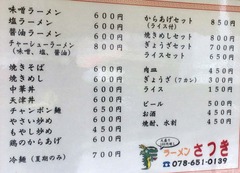 味噌ラーメン 600円
塩ラーメン 600円
醤油ラーメン 600円
チャーシューラーメン 800円
(味噌、塩、醤油)
焼きそば 600円
焼きめし 600円
中華丼 600円
天津丼 600円
チャンポン麺 650円
やさい炒め 600円
もやし炒め 450円
鶏のからあげ 600円
冷麺(夏期のみ) 700円
からあげセット 850円
(ライス付)
焼きめしセット
ぎょうざセット
ライス
肉皿 450円
ぎょうざ(7カン) 300円
ライス 150円
ビール 500円
お酒 450円
焼酎、水割 450円
ラーメン さつき
078-651-0139